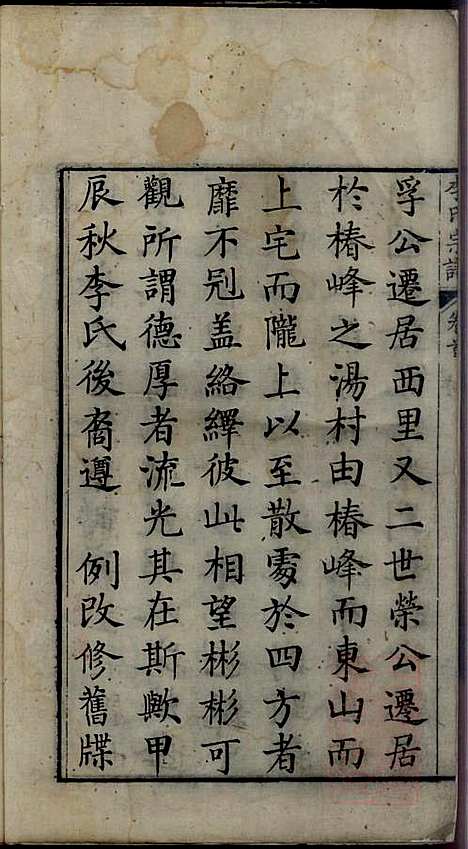 李氏宗譜　卷首
孚公遷居西里又二世榮公遷居
於椿峰之湯村由椿峰而東山而
上宅而隴上以至散處於四方者
靡不冠盖絡繹彼此相望彬彬可
觀所謂德厚者流光其在斯歟甲
辰秋李氏後裔遵　例改修舊牒